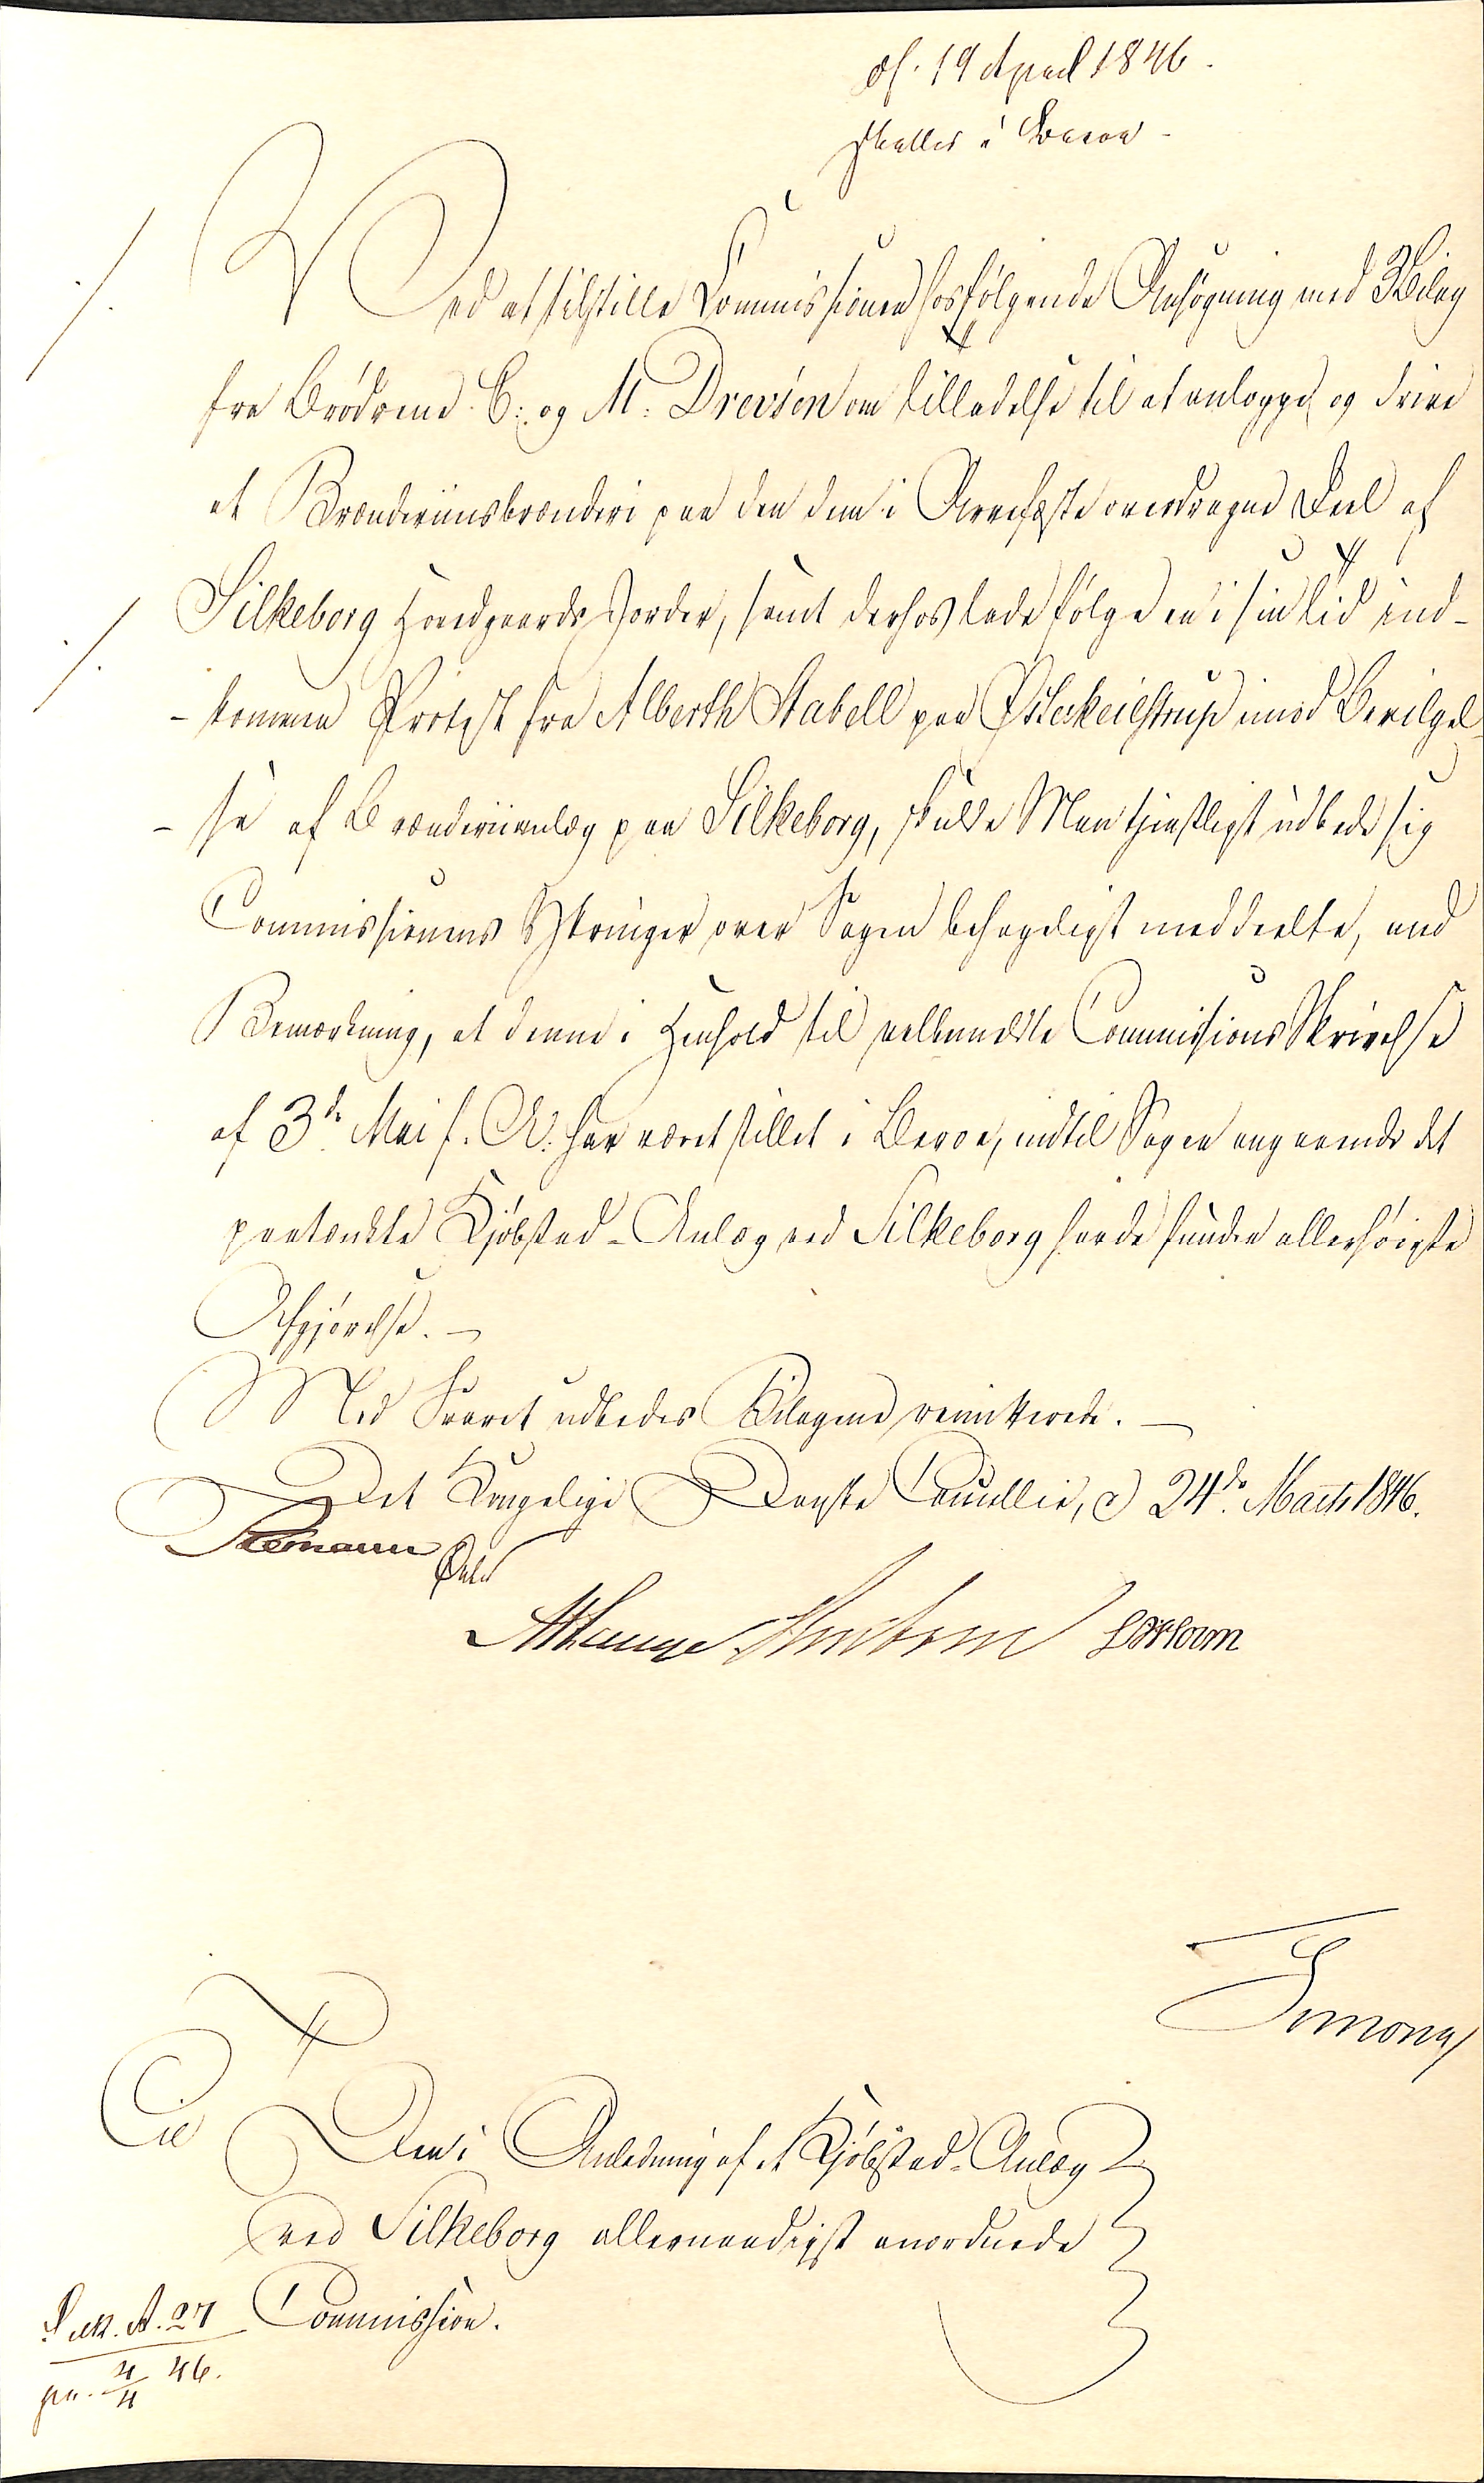 d. 19 April 1846.
stilles i Beroe
Ved at tilstille Commissionen hosfølgende Ansøgning med 3 Bilag
fra Brødrene C: og M: Drewsen om Tilladelse til at anlægge og drive
et Brændeviinsbrænderi paa den dem i Arvefæste overdragne Deel af
Silkeborg Hovedgaards Jorder, samt derhos lade følge en i sin Tid ind-
- kommen Protest fra Alberth Stabell paa Østerkeilstrup imod Bevilgel
- se af Brænderianlæg paa Silkeborg, skulde Man tjenstligst udbede sig
Commissionens Ythringer over Sagen behageligst meddeelte, med
Bemærkning, at denne i Henhold til velbemeldte Commissions Skrivelse
af 3de Mai f. A. har været stillet i Beroe, indtil Sagen angaaende det
paatænkte Kjøbstad-Anlæg ved Silkeborg havde funden allerhøieste
Afgjørelse. -
Med Svaret udbedes Bilagene remitterede. -
Det Kongelige Danske Cancellie, d 24de Marts 1846.
Stemann
Ørsted
Lange
Simony
Til
Den i Anledning af et Kjøbstad-Anlæg
ved Silkeborg allernaadigst anordnede
Commission.
A. 27
pr. 4/4 46.